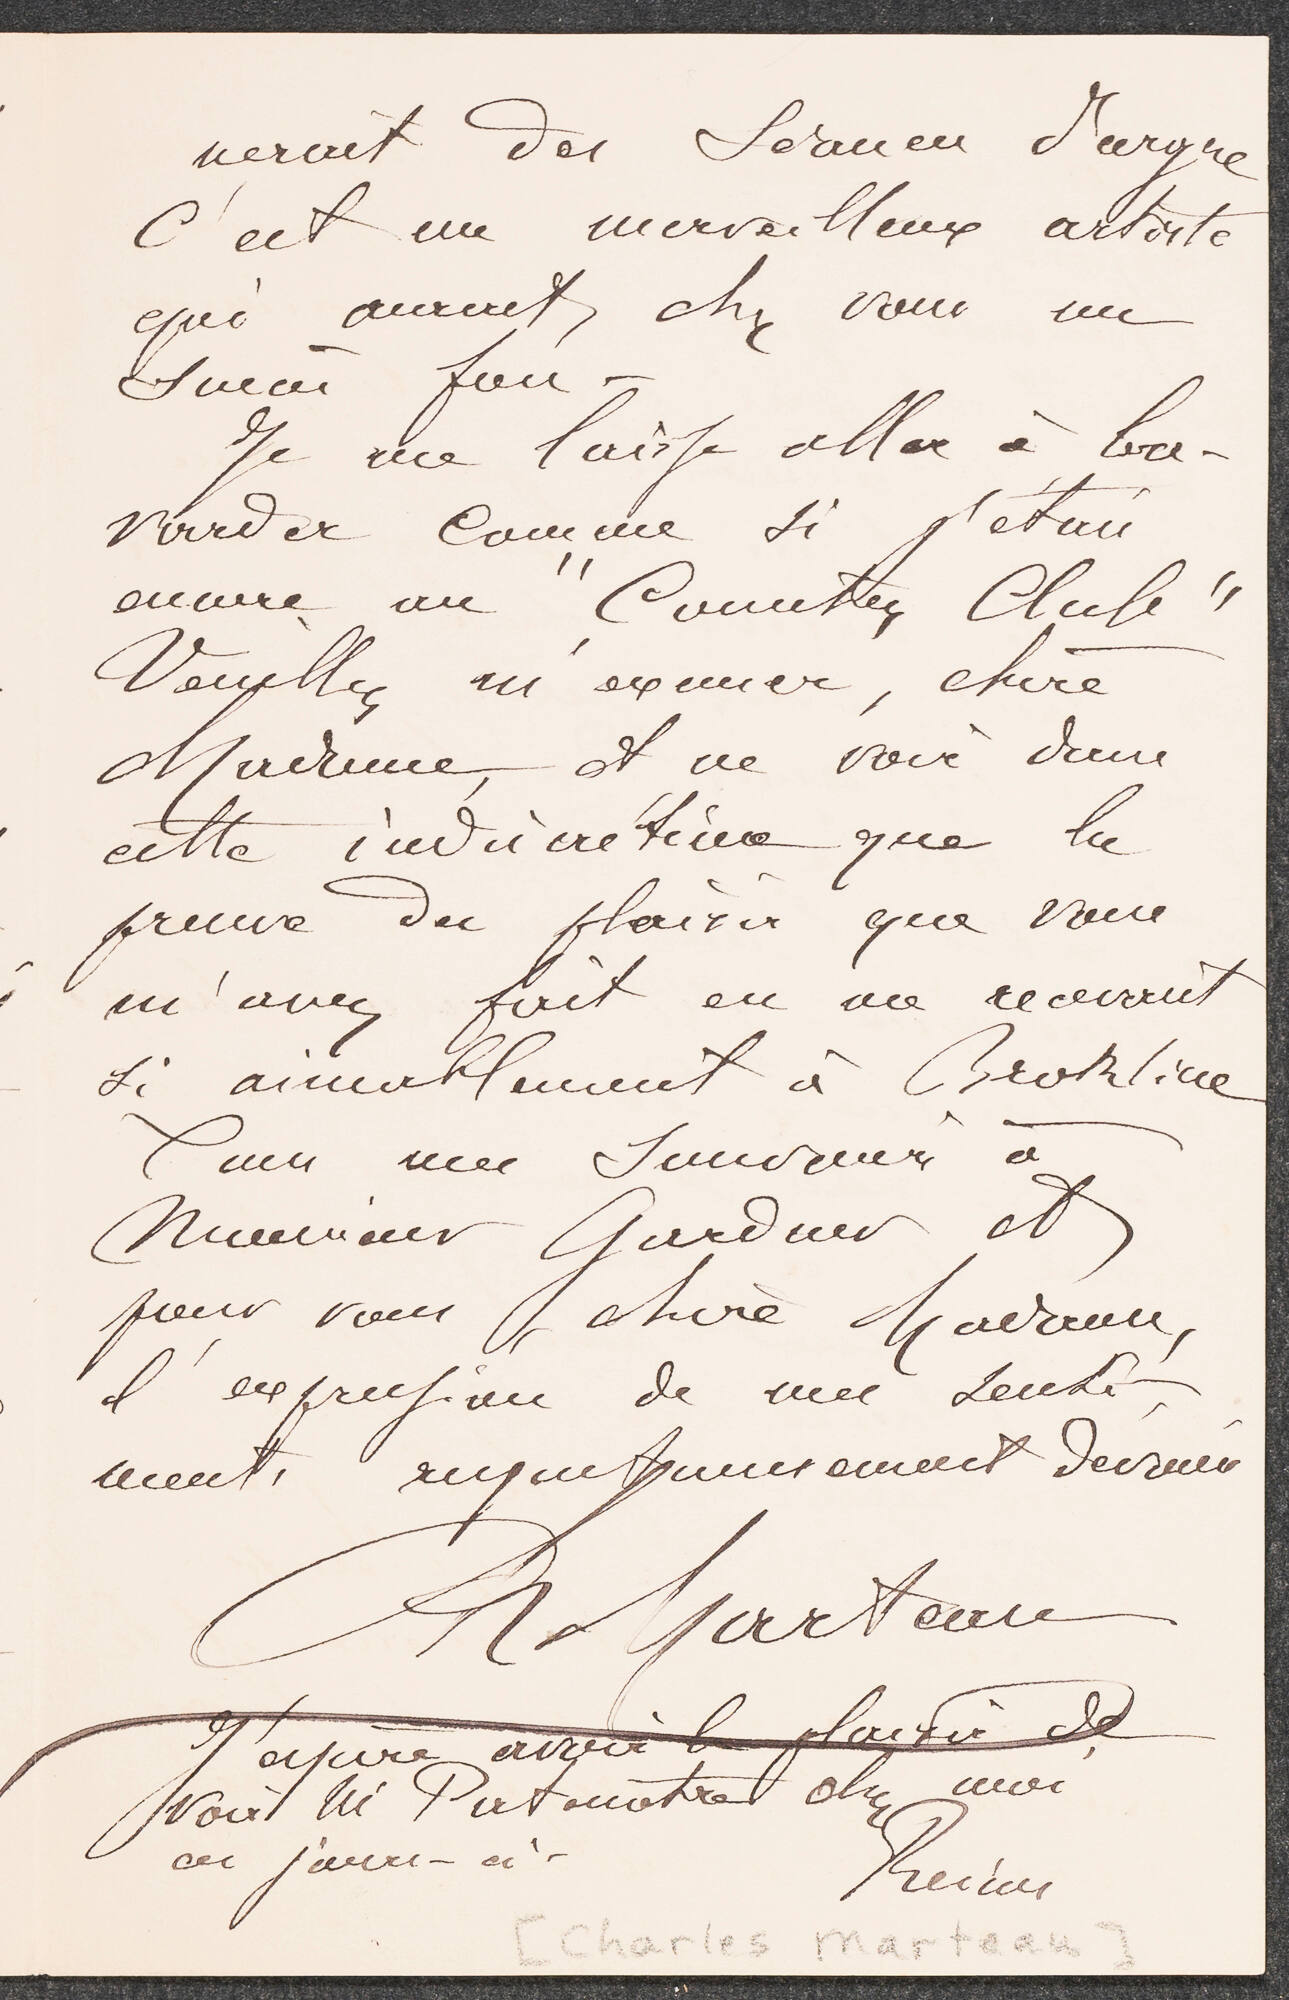 nerait des séances d'orgue
C'est un merveilleux artiste
qui aurait, chez vous un
succès fou –
Je me laisse aller à ba-
varder comme si j'étais
encore au "Country Club"
Veuillez m'excuser, chère
Madame, et ne voir dans
cette indiscrétion que la
preuve du plaisir que vous
m'avez fait en me recevant
si aimablement à Brokline
Tous mes souvenirs à
Monsieur Gardner et
pour vous, chère Madame,
l'expression de mes senti-
ments respectueusement dévoués
Ch Marteau
J'espère avoir le plaisir de
voir M chez moi
ces jours-ci-
Reims
[Charles Marteau]